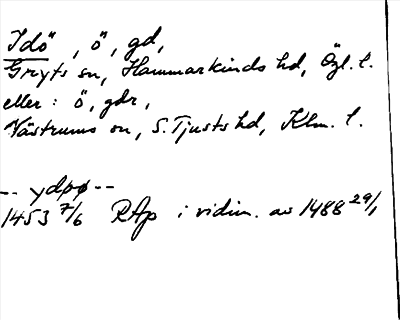 Idö, ö, gd,
Gryts sn, Hammarkinds hd, Ögl. l.
eller: ö, gdr,
Västrums sn, S. Tjusts hd, Klm. l.
-- ydpø --
1453 7/6 RAp i vidim. av 1488 29/1